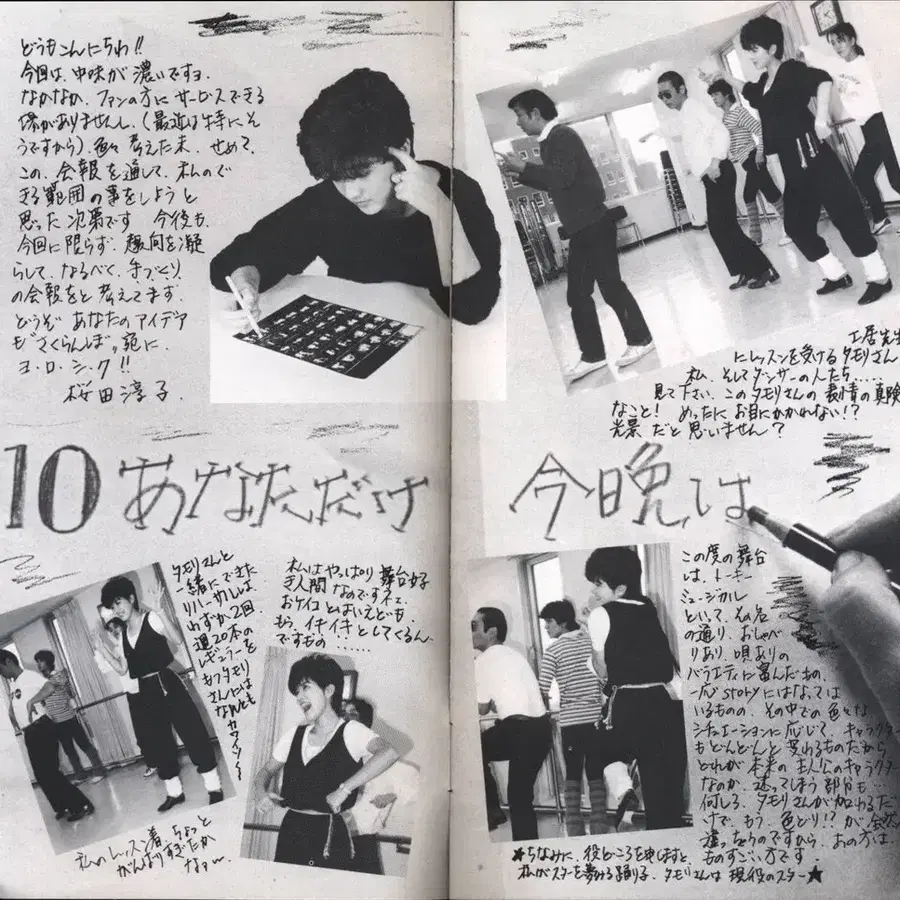 どうもこんにちわ!!
今回は、中味が濃いですヨ.
なかなか、ファンの方にサービスできる
(最近は特にそ
うですから)、色々考えた末、せめて、
この、会報を通して、私ので
きる範囲の事をしようと
思った次第です 今後も、
今回に限らず、趣向を凝
らして、なるべく、手づくり
の会報をと考えてます.
どうぞあなたのアイデア
も“さくらんぼ„宛に、
ヨ・ロ・シ・ク!!
桜田淳子.
土居先生
にレッスンを受けるタモリさん
私、そしてダンサーの人たち......
見て下さい、このタモリさんの表情の真険
なこと! めったにお目にかかれない!?
光景だと思いません?
10 あなただけ 今晩は
タモリさんと
一緒にできた
リハーサルは
わずか2回、
週20本の
レギュラーを
もつタモリ
さんには
なんとも
カワイソ〜
私はやっぱり舞台好
き人間なのですネェ.
おケイコとはいえども
もう、イキイキとしてくるん
ですもの......
私のレッスン着、ちょっと
がんばりすぎたか
なァ〜
この度の舞台
は、トーキー
ミュージカル
といって、その名
の通り、おしゃべ
りあり、唄ありの
バラエティに富んだもの、
一応storyにはなっては
いるものの、その中での色々な
シチュエーションに応じて、キャラクター
もどんどんと変わるものだから
どれが本来の主人公のキャラクター
なのか、迷ってしまう部分も...
何しろ、タモリさんが加わるだ
けで、もう、色どり!?が全然
違っちゃうのですから、あの方は、
ものすごい方です.
★ちなみに、役どころを申しますと、
私がスターを夢みる踊り子、タモリさんは現役のスター★